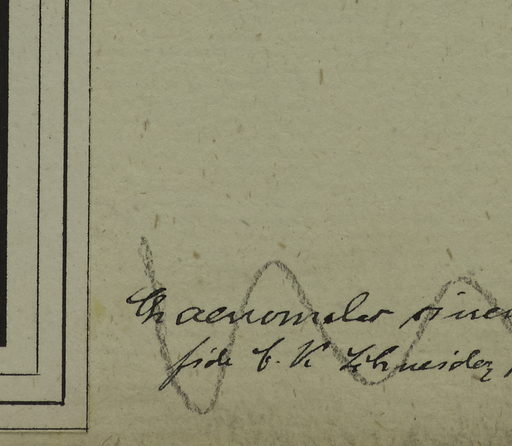 Chaenomeles sinen
fide C. K. Schneider